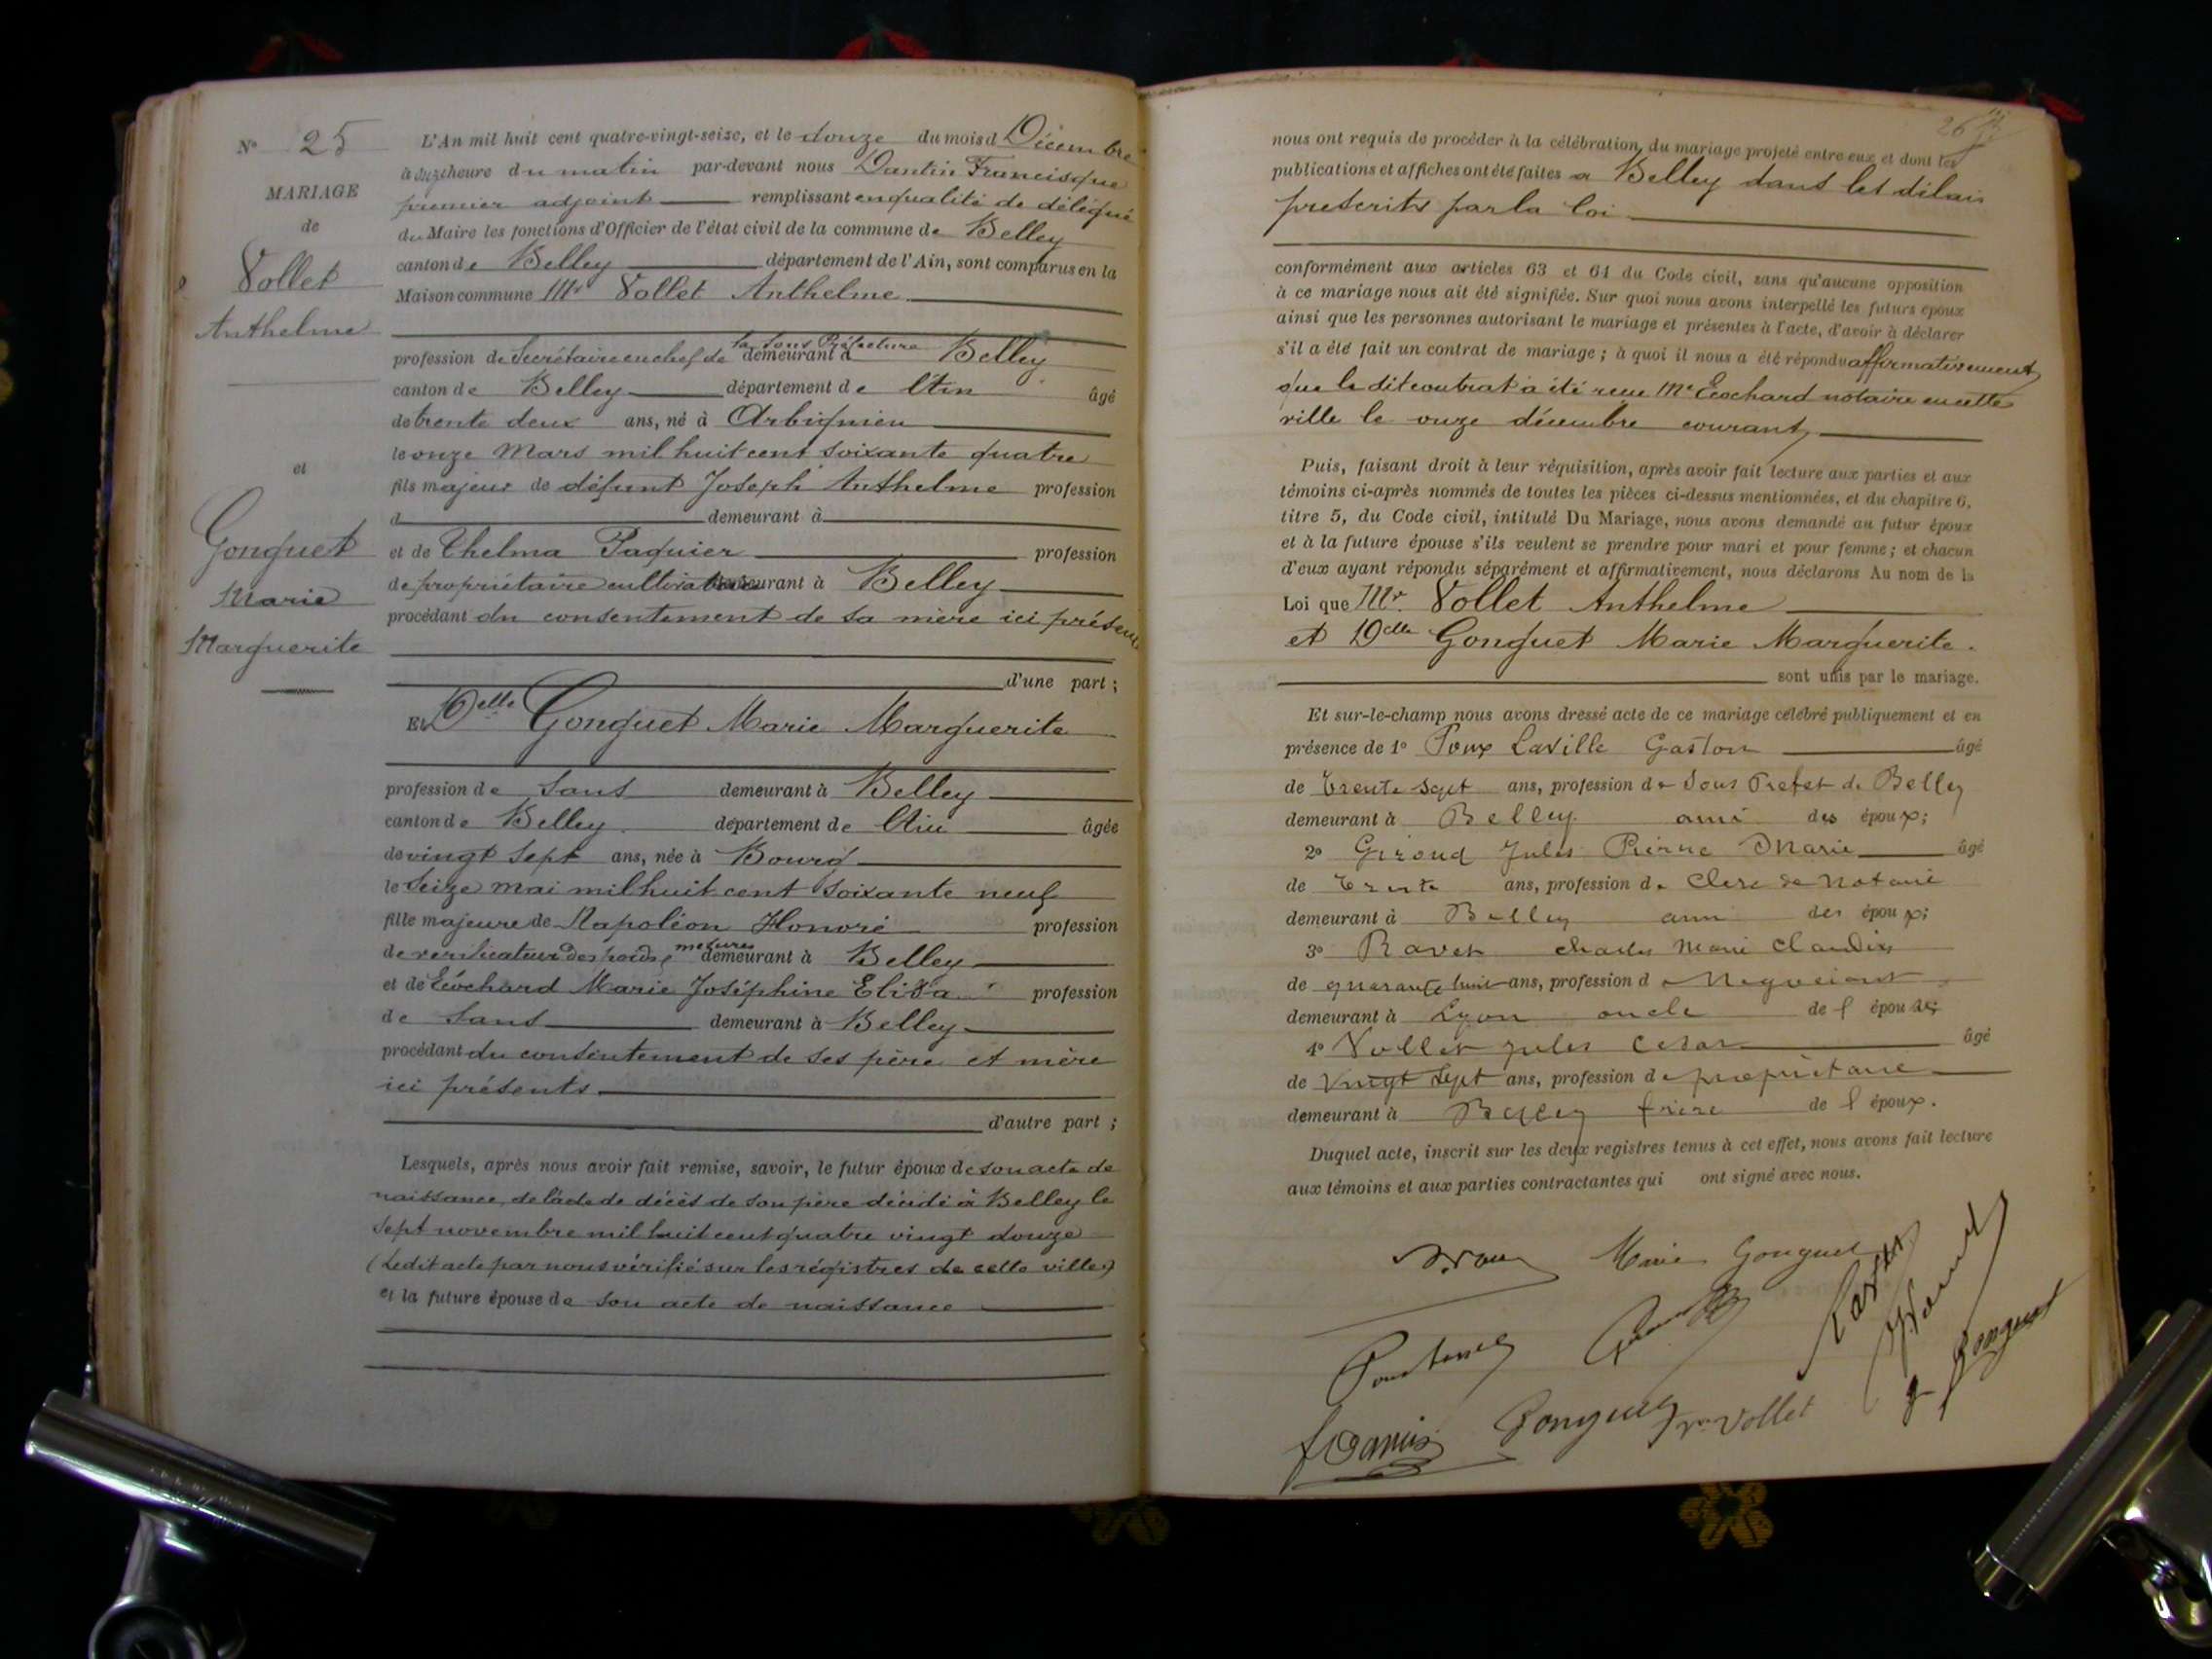 N° 25
MARIAGE
de
Vollet
Anthelme
et
Gonguet
Marie
Marguerite
L'An mil huit cent quatre-vingt-seize, et le douze du mois d Décembre
à onze heure du matin par-devant nous Dantin Francisque
premier adjoint remplissant en qualité de délégué
du Maire les fonctions d'Officier de l'état civil de la commune de Belley
canton de Belley département de l'Ain, sont comparus en la
Maison commune Mr Vollet Anthelme
profession de Secrétaire en chef de la Sous Préfecture demeurant à Belley
canton de Belley département de l'Ain âgé
de trente deux ans, né à Arbignieu
le onze Mars mil huit cent soixante quatre
fils majeur de défunt Joseph Anthelme profession
d demeurant à
et de Thelma Paquier profession
de propriétaire cultivatrice demeurant à Belley
procédant du consentement de sa mère ici présente
d'une part ;
Et Delle Gonguet Marie Marguerite
profession de Sans demeurant à Belley
canton de Belley département de l'Ain âgée
de vingt sept ans, née à Bourg
le Seize mai mil huit cent soixante neuf
fille majeure de Napoléon Honoré profession
de vérificateur des poids, mesures demeurant à Belley
et de Ecochard Marie Joséphine Elisa profession
de Sans demeurant à Belley
procédant du consentement de ses père et mère
ici présents
d'autre part ;
Lesquels, après nous avoir fait remise, savoir, le futur époux de son acte de
naissance, de l'acte de décès de son père décédé à Belley le
sept novembre mil huit cent quatre vingt douze
(Ledit acte par nous vérifié sur les régistres de cette ville)
et la future épouse de son acte de naissance
26
nous ont requis de procéder à la célébration du mariage projeté entre eux et dont les
publications et affiches ont été faites a Belley dans les délais
prescrits par la loi
conformément aux articles 63 et 64 du Code civil, sans qu'aucune opposition
à ce mariage nous ait été signifiée. Sur quoi nous avons interpellé les futurs époux
ainsi que les personnes autorisant le mariage et présentes à l'acte, d'avoir à déclarer
s'il a été fait un contrat de mariage ; à quoi il nous a été répondu affirmativement
que le dit contrat a été reçu Me Ecochard notaire en cette
ville le onze décembre courant,
Puis, faisant droit à leur réquisition, après avoir fait lecture aux parties et aux
témoins ci-après nommés de toutes les pièces ci-dessus mentionnées, et du chapitre 6,
titre 5, du Code civil, intitulé Du Mariage, nous avons demandé au futur époux
et à la future épouse s'ils veulent se prendre pour mari et pour femme ; et chacun
d'eux ayant répondu séparément et affirmativement, nous déclarons Au nom de la
Loi que Mr. Vollet Anthelme
et Delle Gonguet Marie Marguerite.
sont unis par le mariage.
Et sur-le-champ nous avons dressé acte de ce mariage célébré publiquement et en
présence de 1° Poux Laville Gaston âgé
de trente sept ans, profession de Sous Prefet de Belley
demeurant à Belley ami des époux ;
2° Giroud Jules Pierre Marie âgé
de trente ans, profession de Clerc de Notaire
demeurant à Belley ami des époux ;
3° Ravet Charles Marie Claudius
de quarante huit ans, profession de Negociant
demeurant à Lyon oncle de l épouse
4° Vollet Jules Cesar âgé
de Vingt Sept ans, profession de propriétaire
demeurant à Belley frère de l époux.
Duquel acte, inscrit sur les deux registres tenus à cet effet, nous avons fait lecture
aux témoins et aux parties contractantes qui ont signé avec nous.
Marie Gonguet
Gonguet
Vollet
Gonguet